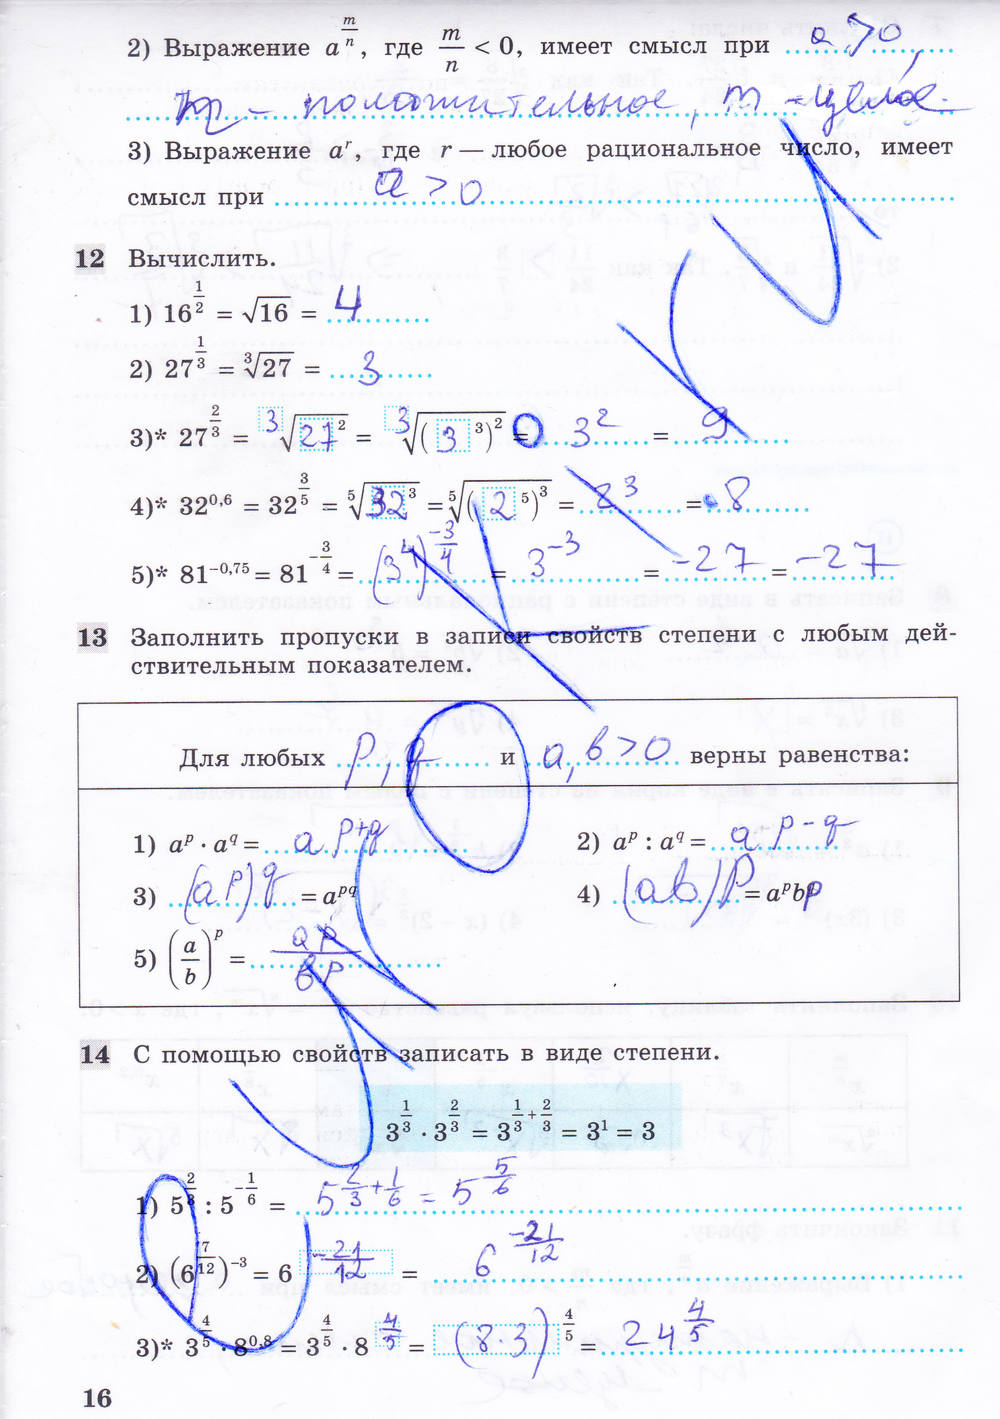 2) Выражение a^(m/n), где m/n < 0, имеет смысл при a > 0,
n – положительное, m – целое.
3) Выражение a^r, где r — любое рациональное число, имеет
смысл при a > 0
12 Вычислить.
1) 16^(1/2) = √16 = 4
2) 27^(1/3) = ∛27 = 3
3)* 27^(2/3) = ∛(27²) = ∛((3³)²) = 3² = 9
4)* 32^0,6 = 32^(3/5) = ⁵√(32³) = ⁵√((2⁵)³) = 2³ = 8
5)* 81^(-0,75) = 81^(-3/4) = (3⁴)^(-3/4) = 3^(-3) = -27 = -27
13 Заполнить пропуски в записи свойств степени с любым дей-
ствительным показателем.
Для любых p, q и a, b > 0 верны равенства:
1) a^p · a^q = a^(p+q) 2) a^p : a^q = a^(p-q)
3) (a^p)^q = a^(pq) 4) (ab)^p = a^p b^p
5) (a/b)^p = a^p/b^p
14 С помощью свойств записать в виде степени.
3^(1/3) · 3^(2/3) = 3^(1/3+2/3) = 3^1 = 3
1) 5^(2/3) : 5^(-1/6) = 5^(2/3+1/6) = 5^(5/6)
2) (6^(7/12))^(-3) = 6^(-21/12) = 6^(-21/12)
3)* 3^(4/5) · 8^0,8 = 3^(4/5) · 8^(4/5) = (8·3)^(4/5) = 24^(4/5)
16